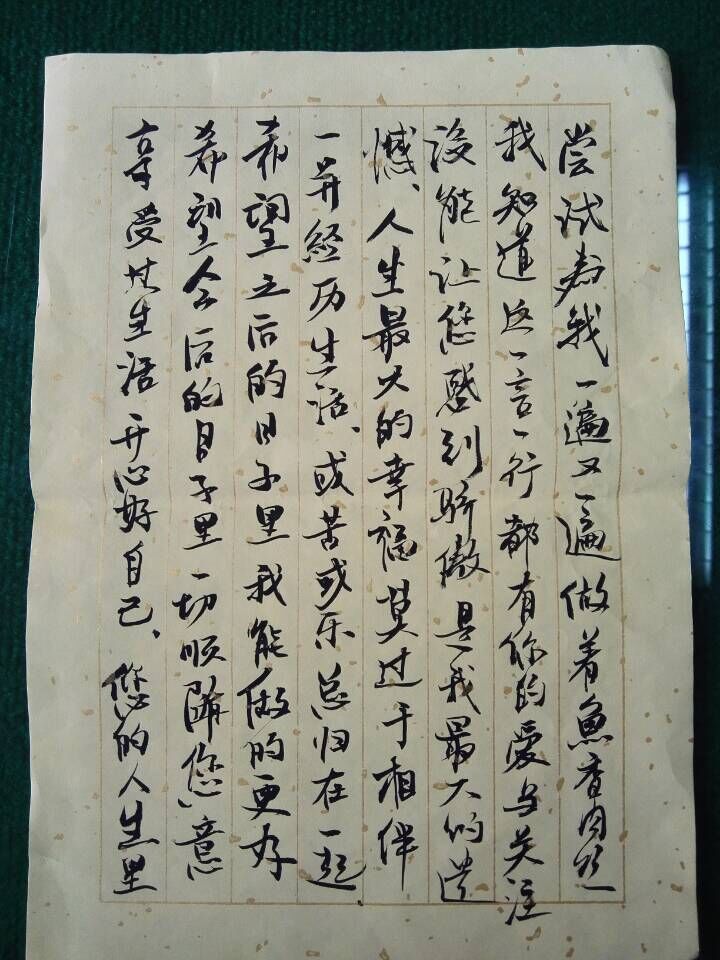 尝试为我一遍又一遍做着魚香肉丝
我知道这一言一行都有你的爱与关注
没能让您感到骄傲是我最大的遗
憾、人生最大的幸福莫过于相伴
一并经历生活、或苦或乐总归在一起
希望之后的日子里我能做的更好
希望今后的日子里一切顺随您意
享受生活开心好自己、您的人生里